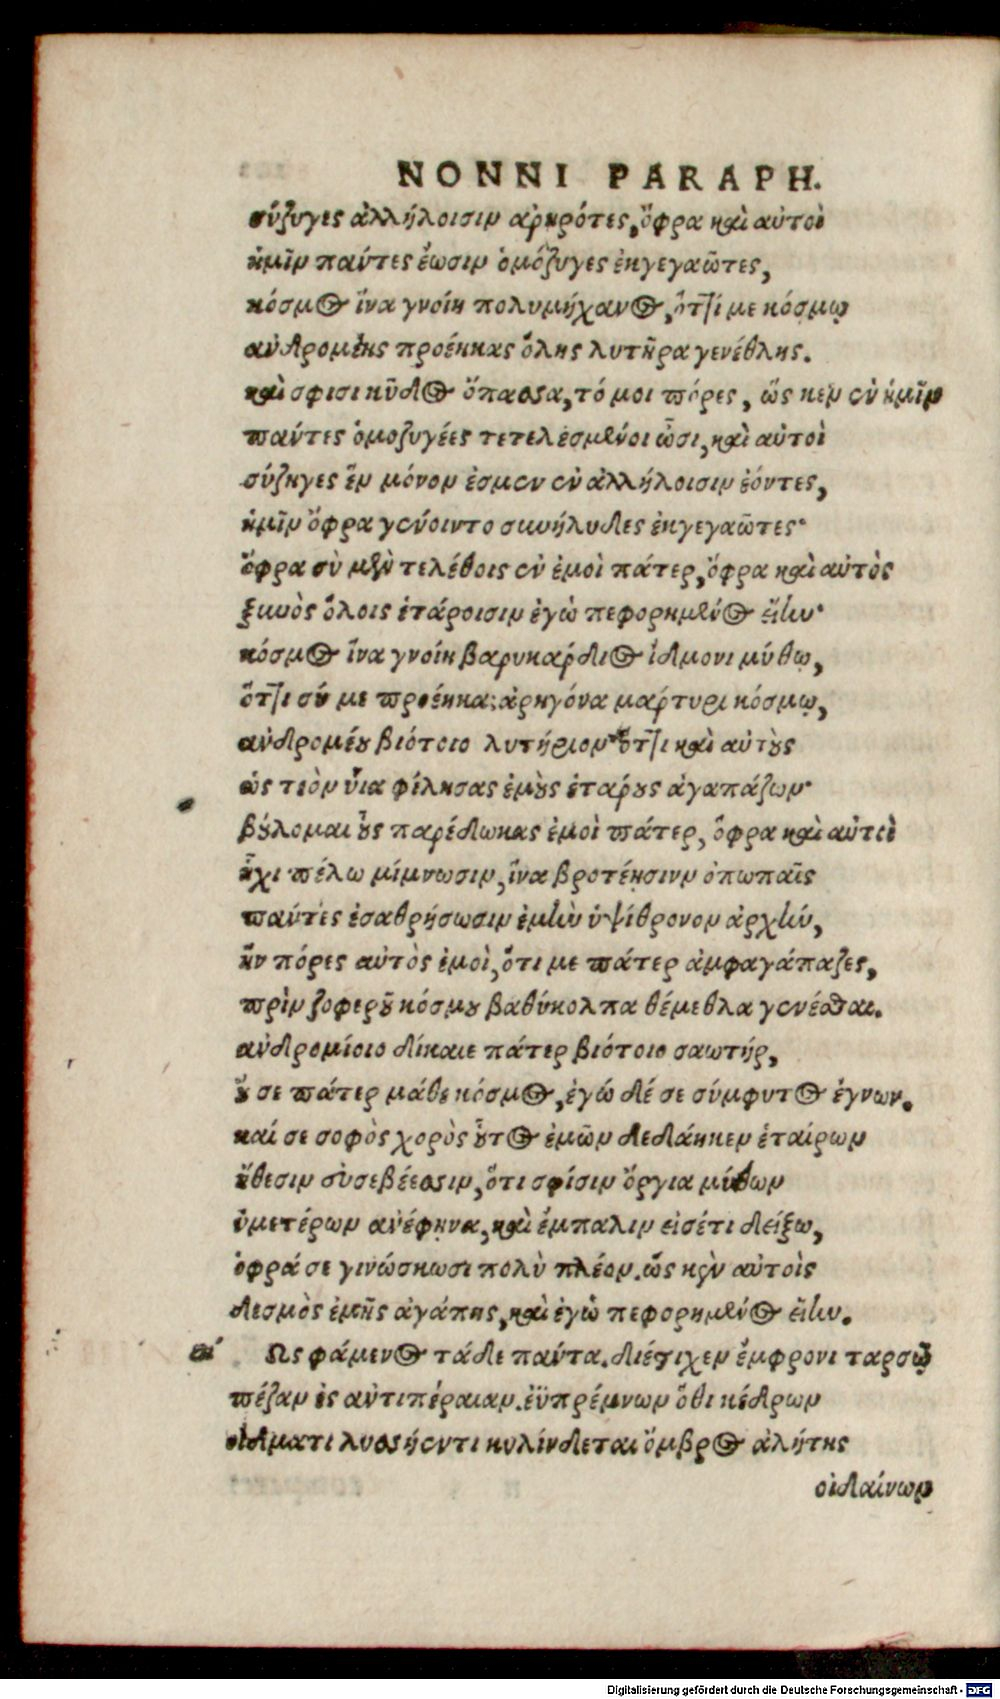 NONNI PARAPH.
σύζυγες ἀλλήλοισιν ἀρηρότες, ὄφρα καὶ αὐτοὶ
ἡμῖν πάντες ἔωσιν ὁμόζυγες ἐκγεγαῶτες,
κόσμος ἵνα γνοίη πολυμήχανος, ὅττί με κόσμῳ
ἀνδρομέης προέηκας ὅλης λυτῆρα γενέθλης.
καὶ σφισι κῦδος ὄπασσα, τό μοι πόρες, ὥς κεν ἐν ἡμῖν
πάντες ὁμοζυγέες τετελεσμένοι ὦσι, καὶ αὐτοὶ
σύζηγες ἓν μόνον ἐσμεν ἐν ἀλλήλοισιν ἐόντες,
ἡμῖν ὄφρα γένοιντο συνήλυδες ἐκγεγαῶτες·
ὄφρα σὺ μὲν τελέθοις ἐν ἐμοὶ πάτερ, ὄφρα καὶ αὐτὸς
ξυνὸς ὅλοις ἑτάροισιν ἐγὼ πεφορημένος εἴην·
κόσμος ἵνα γνοίη βαρυκάρδιος ἴδμονι μύθῳ,
ὅττι σύ με προέηκας ἀρηγόνα μάρτυρι κόσμῳ,
ἀνδρομέου βιότοιο λυτήριον· ὅττι καὶ αὐτοὺς
ὡς τεὸν υἷα φίλησας ἐμοὺς ἑτάρους ἀγαπάζων·
βούλομαι οὓς παρέδωκας ἐμοὶ πάτερ, ὄφρα καὶ αὐτοὶ
ἧχι πέλω μίμνωσιν, ἵνα βροτέησινν ὀπωπαῖς
πάντες ἐσαθρήσωσιν ἐμὴν ὑψίθρονον ἀρχὴν,
ἥν πόρες αὐτὸς ἐμοὶ, ὅτι με πάτερ ἀμφαγάπαζες,
πρὶν ζοφεροῦ κόσμου βαθύκολπα θέμεθλα γενέσθαι.
ἀνδρομέοιο δίκαιε πάτερ βιότοιο σαωτήρ,
οὔ σε πάτερ μάθε κόσμος, ἐγώ δέ σε σύμφυτος ἔγνων.
καί σε σοφὸς χορὸς οὗτος ἐμῶν δεδάηκεν ἑταίρων
ἤθεσιν εὐσεβέεσσιν, ὅτι σφίσιν ὄργια μύθων
ὑμετέρων ἀνέφηνα, καὶ ἔμπαλιν εἰσέτι δείξω,
ὀφρά σε γινώσκωσι πολὺ πλέον. ὥς κεν αὐτοῖς
δεσμὸς ἐμῆς ἀγάπης, καὶ ἐγὼ πεφορημένος εἴην.
Ως φάμενος τάδε πάντα. διέστιχεν ἔμφρονι ταρσῷ
πέζαν ἐς ἀντιπέραιαν. ἐϋπρέμνων ὅθι κέδρων
οἴδματι λυσσήεντι κυλίνδεται ὄμβρος ἀλήτης
οἰδαίνων